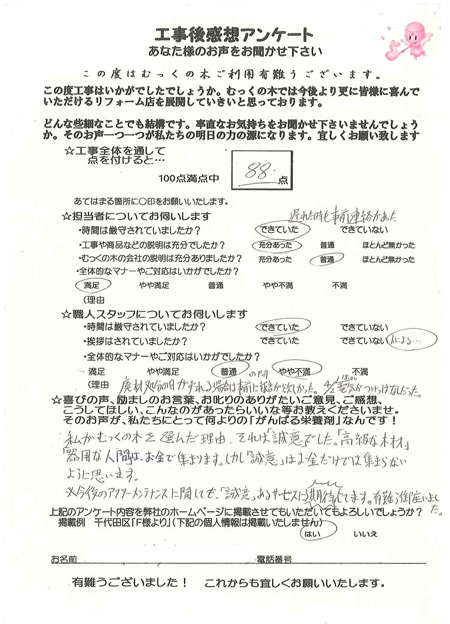 工事後感想アンケート
あなた様のお声をお聞かせ下さい
この度はむっくの木ご利用有難うございます。
この度工事はいかがでしたでしょうか。むっくの木では今後より更に皆様に喜んで
いただけるリフォーム店を展開していきいと思っております。
どんな些細なことでも結構です。率直なお気持ちをお聞かせ下さいませんでしょう
か。そのお声一つ一つが私たちの明日の力の源になります。宜しくお願い致します
☆工事全体を通して
点を付けると…
100点満点中 88. 点
あてはまる箇所に〇印をお願いいたします。
☆担当者についてお伺いします 遅れた時も事前連絡があった
・時間は厳守されていましたか? できていた できていない
・工事や商品などの説明は充分でしたか? 充分あった 普通 ほとんど無かった
・むっくの木の会社の説明は充分ありましたか? 充分あった 普通 ほとんど無かった
・全体的なマナーやご対応はいかがでしたか?
満足 やや満足 普通 やや不満 不満
(理由
☆職人スタッフについてお伺いします
・時間は厳守されていましたか? できていた できていない
・挨拶はされていましたか? できていた できていない 人による…
・全体的なマナーやご対応はいかがでしたか?
満足 やや満足 普通 やや不満 不満
(理由 廃材処分の日がずれる場合は事前に報告が欲しかった。
☆喜びの声、励ましのお言葉、お叱りのありがたいご意見、ご感想、
こうしてほしい、こんなのがあったらいいな等お教えくださいませ。
そのお声が、私たちにとって何よりの「がんばる栄養剤」なんです!
私がむっくの木を選んだ理由、それは「誠意」でした。「高級な木材」
「器用な人間」は、お金で集まります。しかし「誠意」はお金だけでは集まらない
ように思います。
※今後のアフターメンテナンスに関しても、「誠意」あるサービスに期待してます。有難う御座いました。
上記のアンケート内容を弊社のホームページに掲載させてもいただいてもよろしいでしょうか?
掲載例 千代田区「F様より」(下記の個人情報は掲載いたしません)
はい いいえ
お名前 電話番号
有難うございました! これからも宜しくお願いいたします。